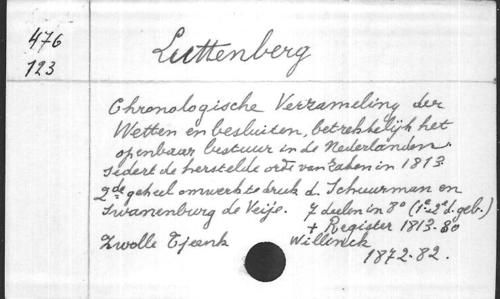 476
123
Luttenberg
Chronologische Verzameling der
Wetten en besluiten, betrekkelijk het
openbaar bestuur in de Nederlanden
sedert de herstelde orde van zaken in 1813
2de geheel omwerkte druk d. Schuurman en
Swanenburg de Veije. 7 deelen in 8° (1e-2e d. geb.)
+ Register 1813-80
Zwolle Tjeenk Willinck
1872-82.